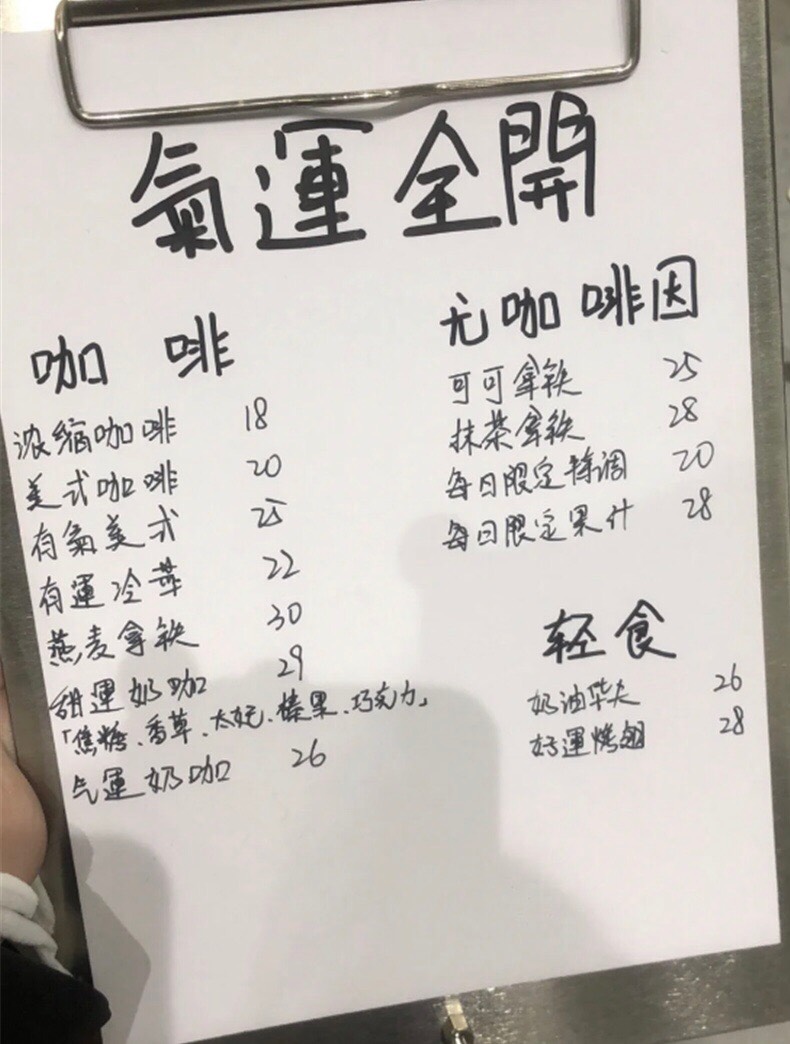 氣運全開
咖啡
浓缩咖啡 18
美式咖啡 20
有氣美式 25
有運冷萃 22
燕麦拿铁 30
甜運奶咖 29
「焦糖、香草、太妃、榛果、巧克力」
气運奶咖 26
无咖啡因
可可拿铁 25
抹茶拿铁 28
每日限定特调 20
每日限定果汁 28
轻食
奶油华夫 26
好運烤翅 28